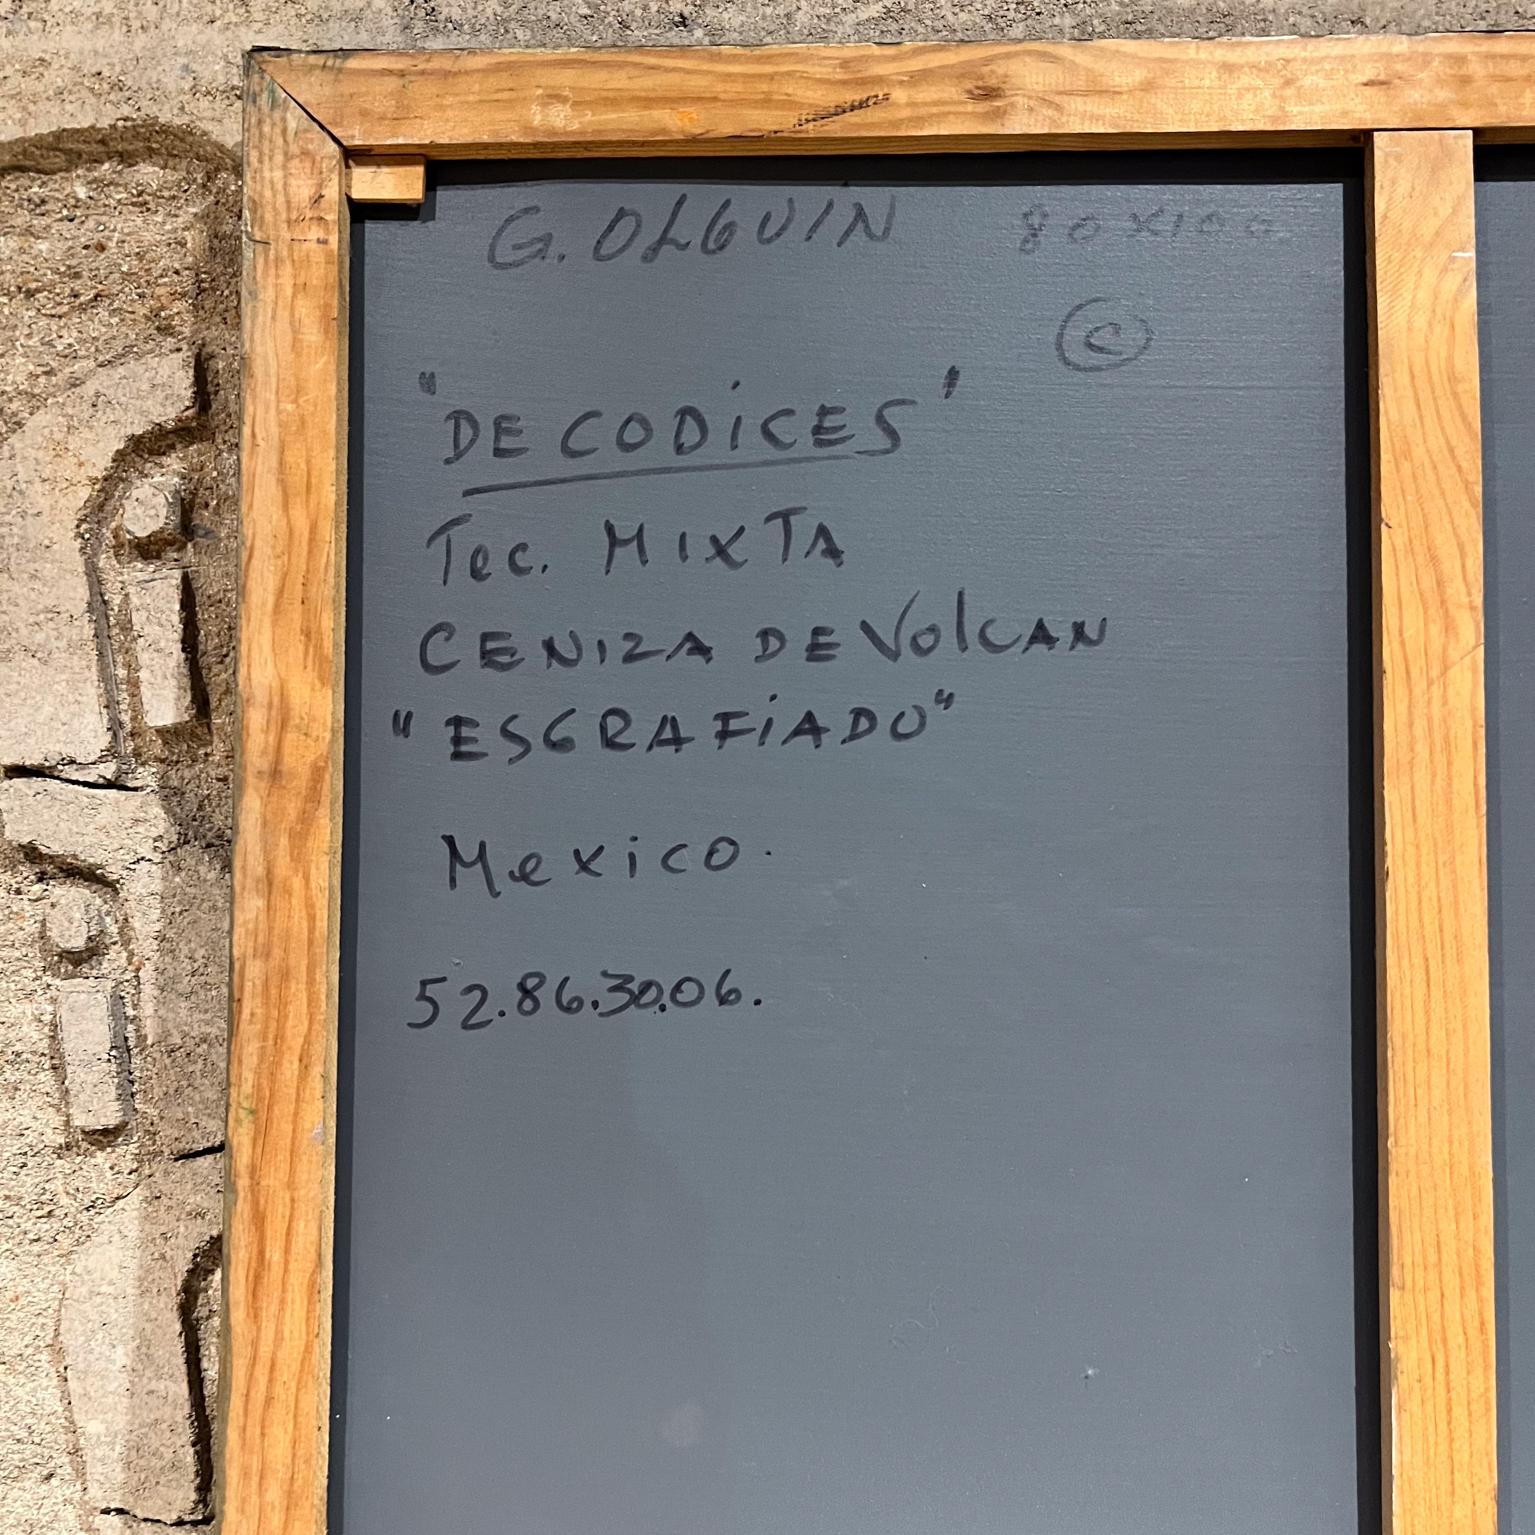 G. OLGUIN 80X100
©
"DE CODiCES"
Tec. MIXTA
CENIZA DE VolCAN
"ESGRAFiADO"
Mexico.
52.86.30.06.